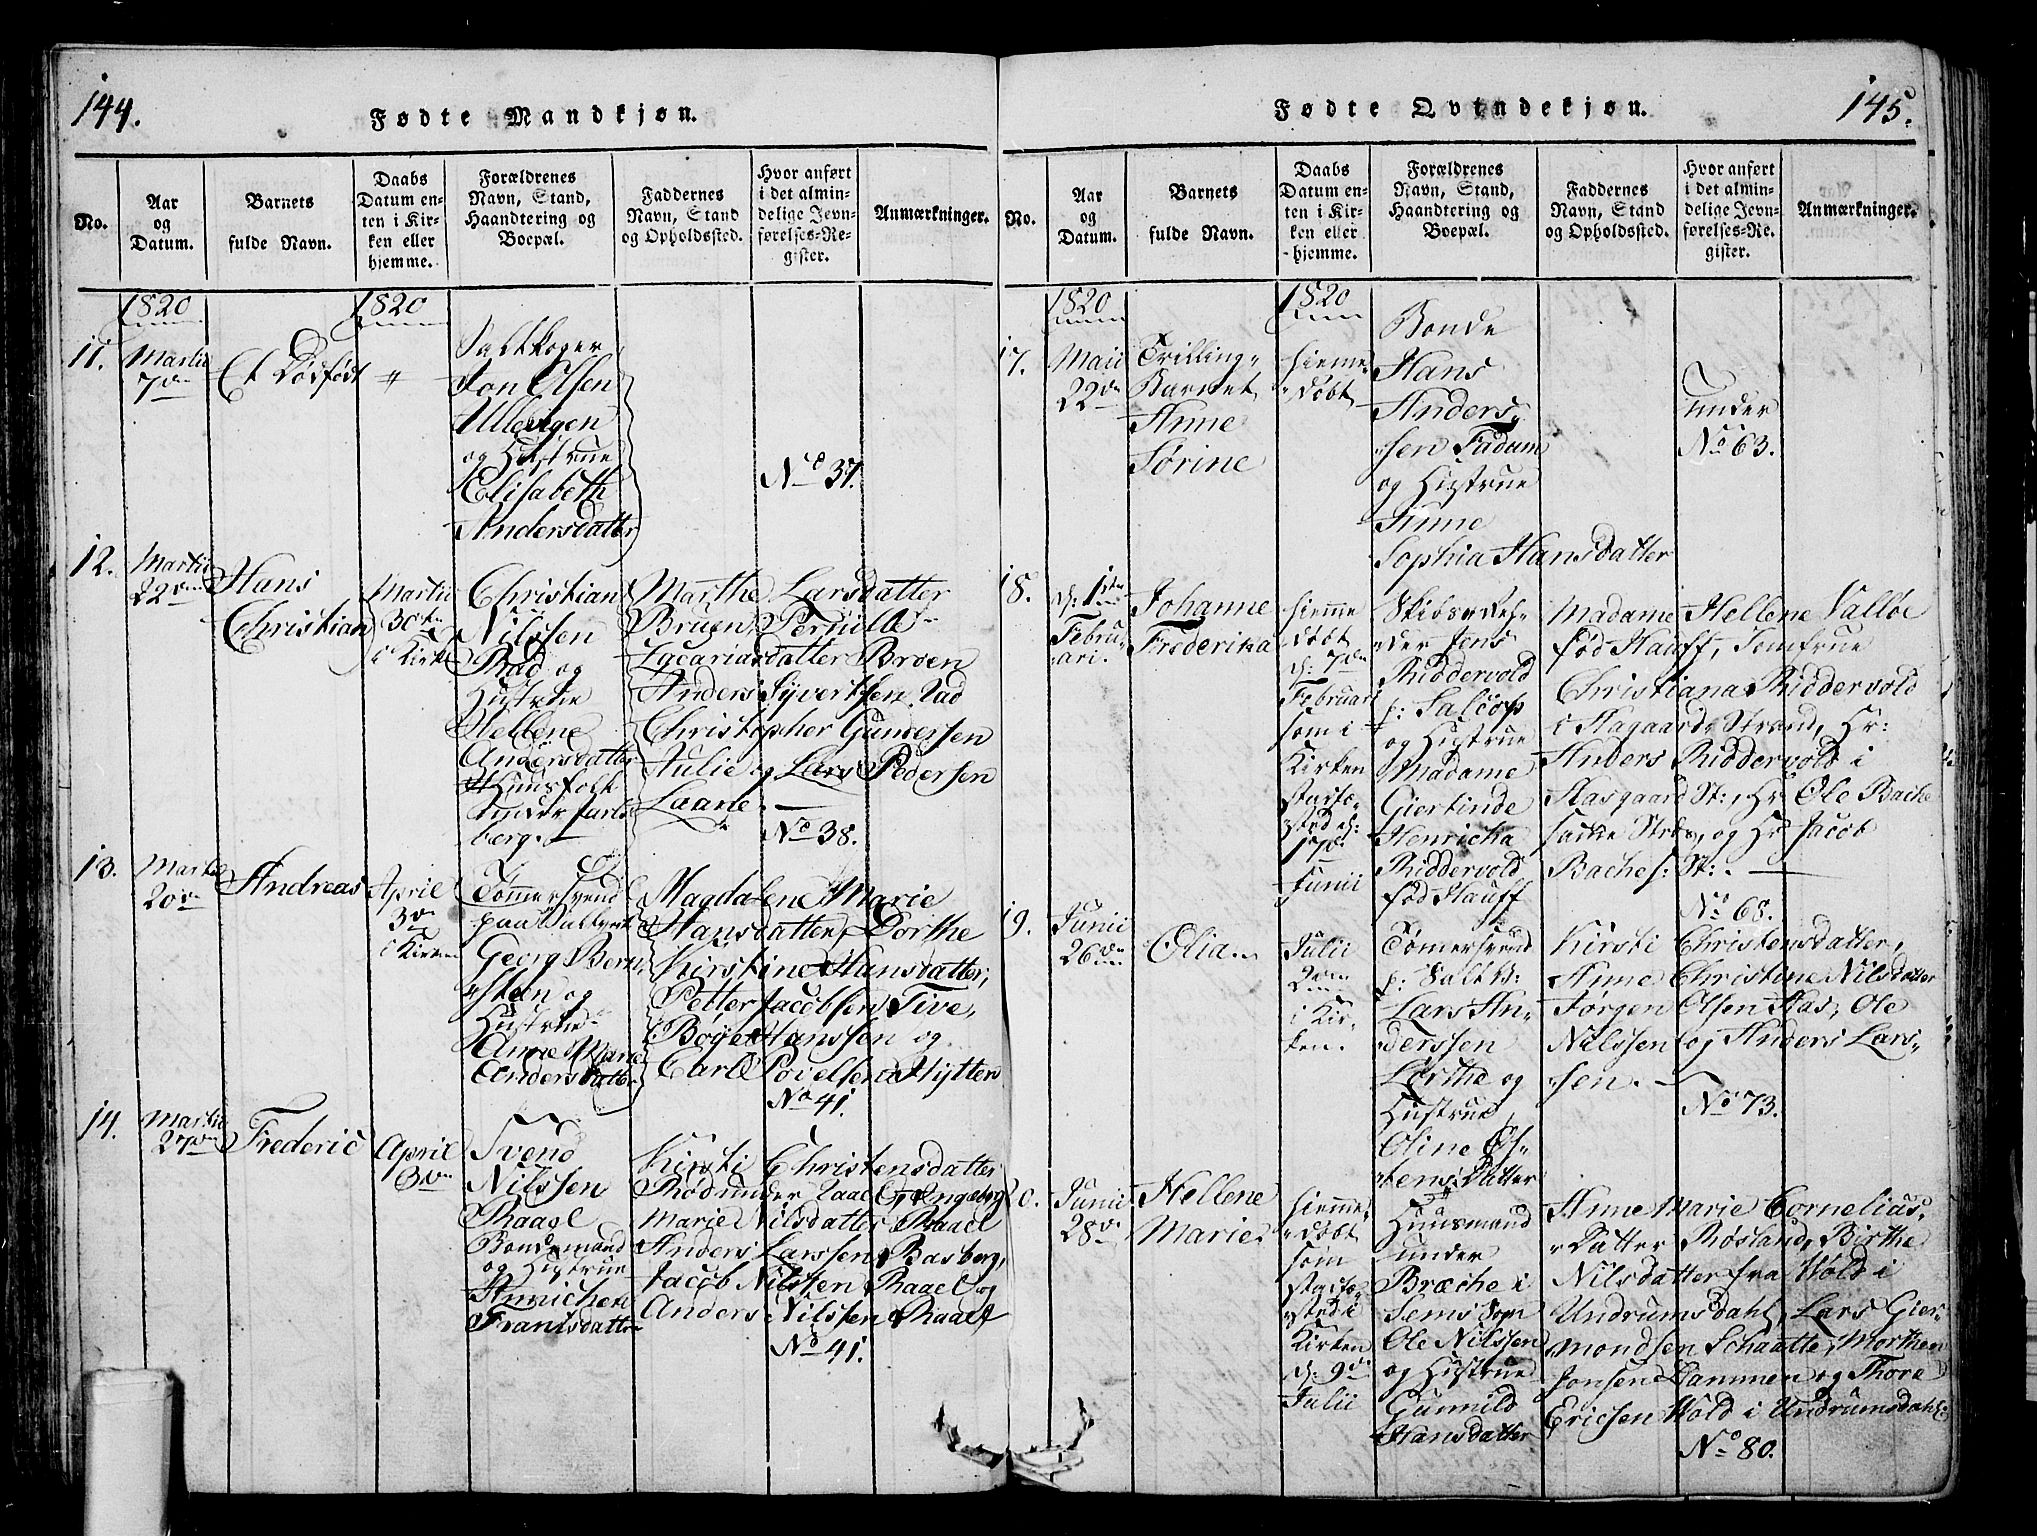 144.
Fødte Mandkjøn.
No.
Aar og Datum.
Barnets fulde Navn.
Daabs Datum enten i Kirken eller hjemme.
Forældrenes Navn, Stand, Haandtering og Boepæl.
Faddernes Navn, Stand og Opholdssted.
Hvor anført i det almindelige Jevnførelses-Register.
Anmærkninger.
1820
1820
11.
Martii
7de
Et Dødfødt
"
Saltkoger
Jon Olsen
Ullevigen
og Hustrue
Elisabeth
Andersdatter
No 37.
12.
Martii
22de
Hans
Christian
Martii
30te
i Kirke
Christian
Nilssen
Rad og
Hustrue
Hellene
Andersdatter
Huusfolk
under Jarls
berg.
Marthe Larsdatter
Bruen, Pernille
Zacariasdatter Broen
Anders Syvertsen Rad
Christopher Gundersen
Julie og Lars Pedersen
Laane.
No 38.
13.
Martii
20de
Andreas
April
3de
i Kirken
Tømmersvend
paa Saltverket
Georg Bern,
"stein og
Hustrue
Anne Marie
Andersdatter
Magdalene Marie
Hansdatter, Dorthe
Kirstine Hansdatter,
Petter Jacobsen Tive,
Bøye Hanssen og
Carl Povelsen Hytten
No 41.
14.
Martii
27de
Frederic
April
3de
Svend
Nilssen
Raael
Bondemand
og Hustrue
Annichen
Frantsdatter
Kirsti Christensdatter
Rød under Raael, Ingeborg
Marie Nilsdatter Raael
Anders Larssen Basberg,
Jacob Nilssen Raael og
Anders Nilssen Raael
No 41.
145.
Fødte Qvindekjøn.
No.
Aar og Datum.
Barnets fulde Navn.
Daabs Datum enten i Kirken eller hjemme.
Forældrenes Navn, Stand, Haandtering og Boepæl.
Faddernes Navn, Stand og Opholdssted.
Hvor anført i det almindelige Jevnførelses-Register.
Anmærkninger.
1820
1820
17.
Maii
22de
Trilling"
Barnet
Anne
Sørine
hieme"
"døbt
Bonde
Hans
Anders,
"sen Fadum
og Hustrue
Anne
Sophia Hansdatter
under
No 63.
18.
d: 1ste
Febru"
"ari.
Johanne
Frederika
hieme
døbt
d: 7de
Februari
som i
Kirken
stadfæ"
"sted d:
17de
Junii
Skibs"Reh"
"der Jens
Riddervold
og Hustrue
Madame
Giertinde
Henricka
Riddervold
fød Hauff
Madame Hellene Valløe
fød Hauff, Jomfrue
Christiana Riddervold
i Aagaards Strand, Hr:
Anders Riddervold i
Aasgaard St:, Hr Ole Bache
og Hr Jacob
Bache St:.
No 68.
19.
Junii
26de
Olia
Julii
2den
i Kir"
ken.
Tømersvend
p: Saltv:
Lars An"
derssen
og
Hustrue
Oline
Datter
Kirsti Christensdatter,
Anne Christine Nilsdatter
Jørgen Olsen Aas, Ole
Nilssen og Anders Lars"
"sen.
No 73.
20.
Junii
28de
Hellene
Marie
hieme"
"døbt
som
stadfæ"
"sted i
Kirken
d: 9de
Julii
Huusmand
under
Bræche i
Sems Sogn
Ole Nilssen
og Hustrue
Gunnild
Hansdatter
Anne Marie Cornelius"
"datter Røsland, Birthe
Nilsdatter fra Wold i
Undrumsdahl, Lars Gier"
mondsen Schaatte, Morthen
Jonsen Dammen og Thore
Ericsen Wold i Undrumsdahl
No 80.